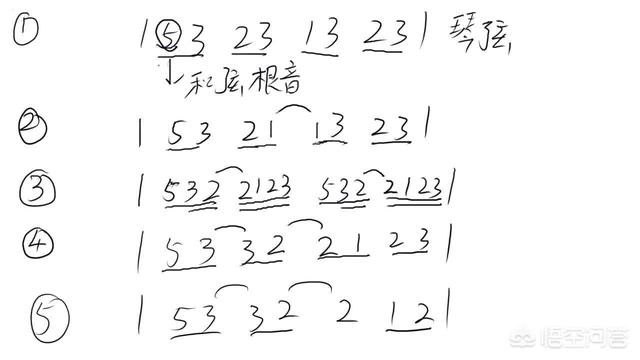 ① | 53 23 13 23 | 琴弦
和弦根音
② | 53 21 13 23 |
③ | 532 2123 532 2123 |
④ | 53 32 21 23 |
⑤ | 53 32 2 12 |
悟空问答